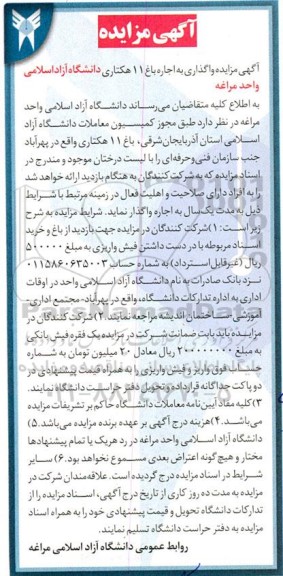 آگهی مزایده
آگهی مزایده واگذاری به اجاره باغ ۱۱ هکتاری دانشگاه آزاد اسلامی
واحد مراغه
به اطلاع کلیه متقاضیان می‌رساند دانشگاه آزاد اسلامی واحد
مراغه در نظر دارد طبق مجوز کمیسیون معاملات دانشگاه آزاد
اسلامی استان آذربایجان شرقی، باغ ۱۱ هکتاری واقع در پهرآباد
جنب سازمان فنی و حرفه‌ای را با لیست درختان موجود و مندرج در
اسناد مزایده که به شرکت کنندگان به هنگام بازدید ارائه خواهد شد
را به افراد دارای صلاحیت و اهلیت فعال در زمینه مرتبط با شرایط
ذیل به مدت یک‌سال به اجاره واگذار نماید. شرایط مزایده به شرح
زیر است: ۱) شرکت کنندگان در مزایده جهت بازدید از باغ و خرید
اسناد مربوطه با در دست داشتن فیش واریزی به مبلغ ۵۰۰۰۰۰
ریال (غیرقابل استرداد) به شماره حساب ۰۱۱۵۸۶۰۶۳۵۰۰۳
نزد بانک صادرات به نام دانشگاه آزاد اسلامی واحد در اوقات
اداری به اداره تدارکات دانشگاه واقع در پهرآباد- مجتمع اداری-
آموزشی- ساختمان اندیشه مراجعه نمایند. ۲) شرکت کنندگان در
مزایده باید بابت ضمانت شرکت در مزایده یک فقره فیش بانکی
به مبلغ ۲۰۰۰۰۰۰۰۰ ریال معادل ۲۰ میلیون تومان به شماره
حساب فوق واریز و فیش واریزی را به همراه قیمت پیشنهادی در
دو پاکت جداگانه قرار داده و تحویل دفتر حراست دانشگاه نمایند.
۳) کلیه مفاد آیین‌نامه معاملات دانشگاه حاکم بر تشریفات مزایده
می‌باشد. ۴) هزینه درج آگهی بر عهده برنده مزایده می‌باشد. ۵)
دانشگاه آزاد اسلامی واحد مراغه در رد هریک یا تمام پیشنهادها
مختار و هیچ‌گونه اعتراض بعدی مسموع نخواهد بود. ۶) سایر
شرایط در اسناد مزایده درج گردیده است. علاقه‌مندان شرکت در
مزایده به مدت ده روز کاری از تاریخ درج آگهی، اسناد مزایده را از
تدارکات دانشگاه تحویل و قیمت پیشنهادی خود را به همراه اسناد
مزایده به دفتر حراست دانشگاه تسلیم نمایند.
روابط عمومی دانشگاه آزاد اسلامی مراغه